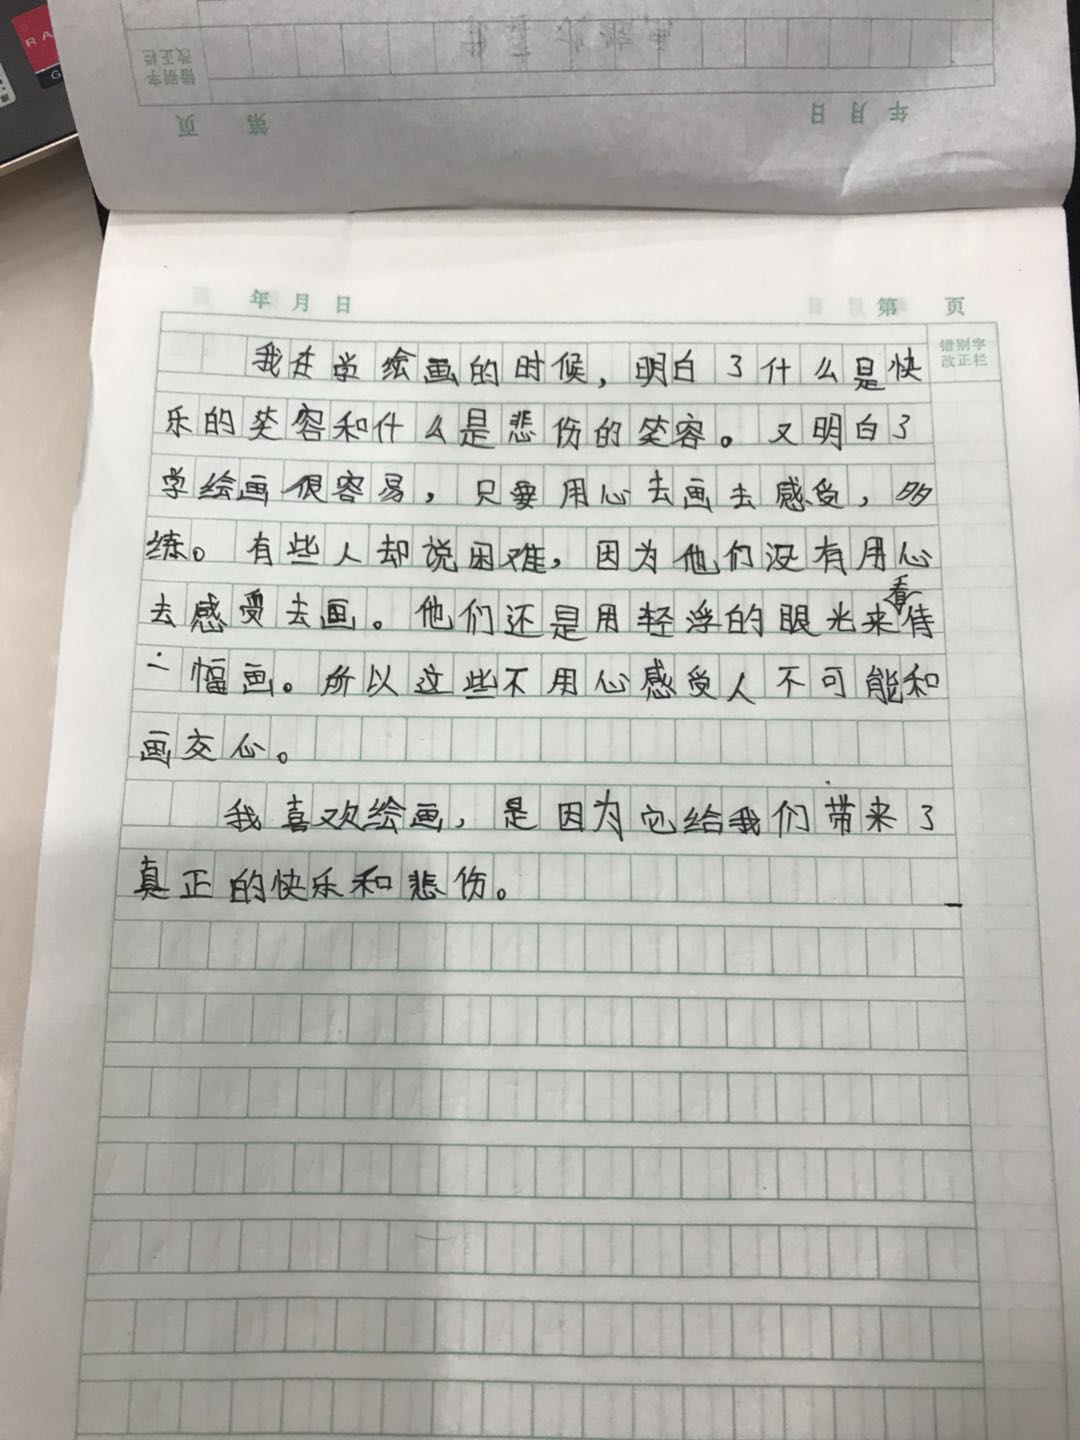 错别字
改正栏
第 页
年 月 日
年 月 日
第 页
错别字
改正栏
我在学绘画的时候，明白了什么是快
乐的笑容和什么是悲伤的笑容。又明白了
学绘画很容易，只要用心去画去感受，多
练。有些人却说困难，因为他们没有用心
去感受去画。他们还是用轻浮的眼光来看待
一幅画。所以这些不用心感受人不可能和
画交心。
我喜欢绘画，是因为它给我们带来了
真正的快乐和悲伤。